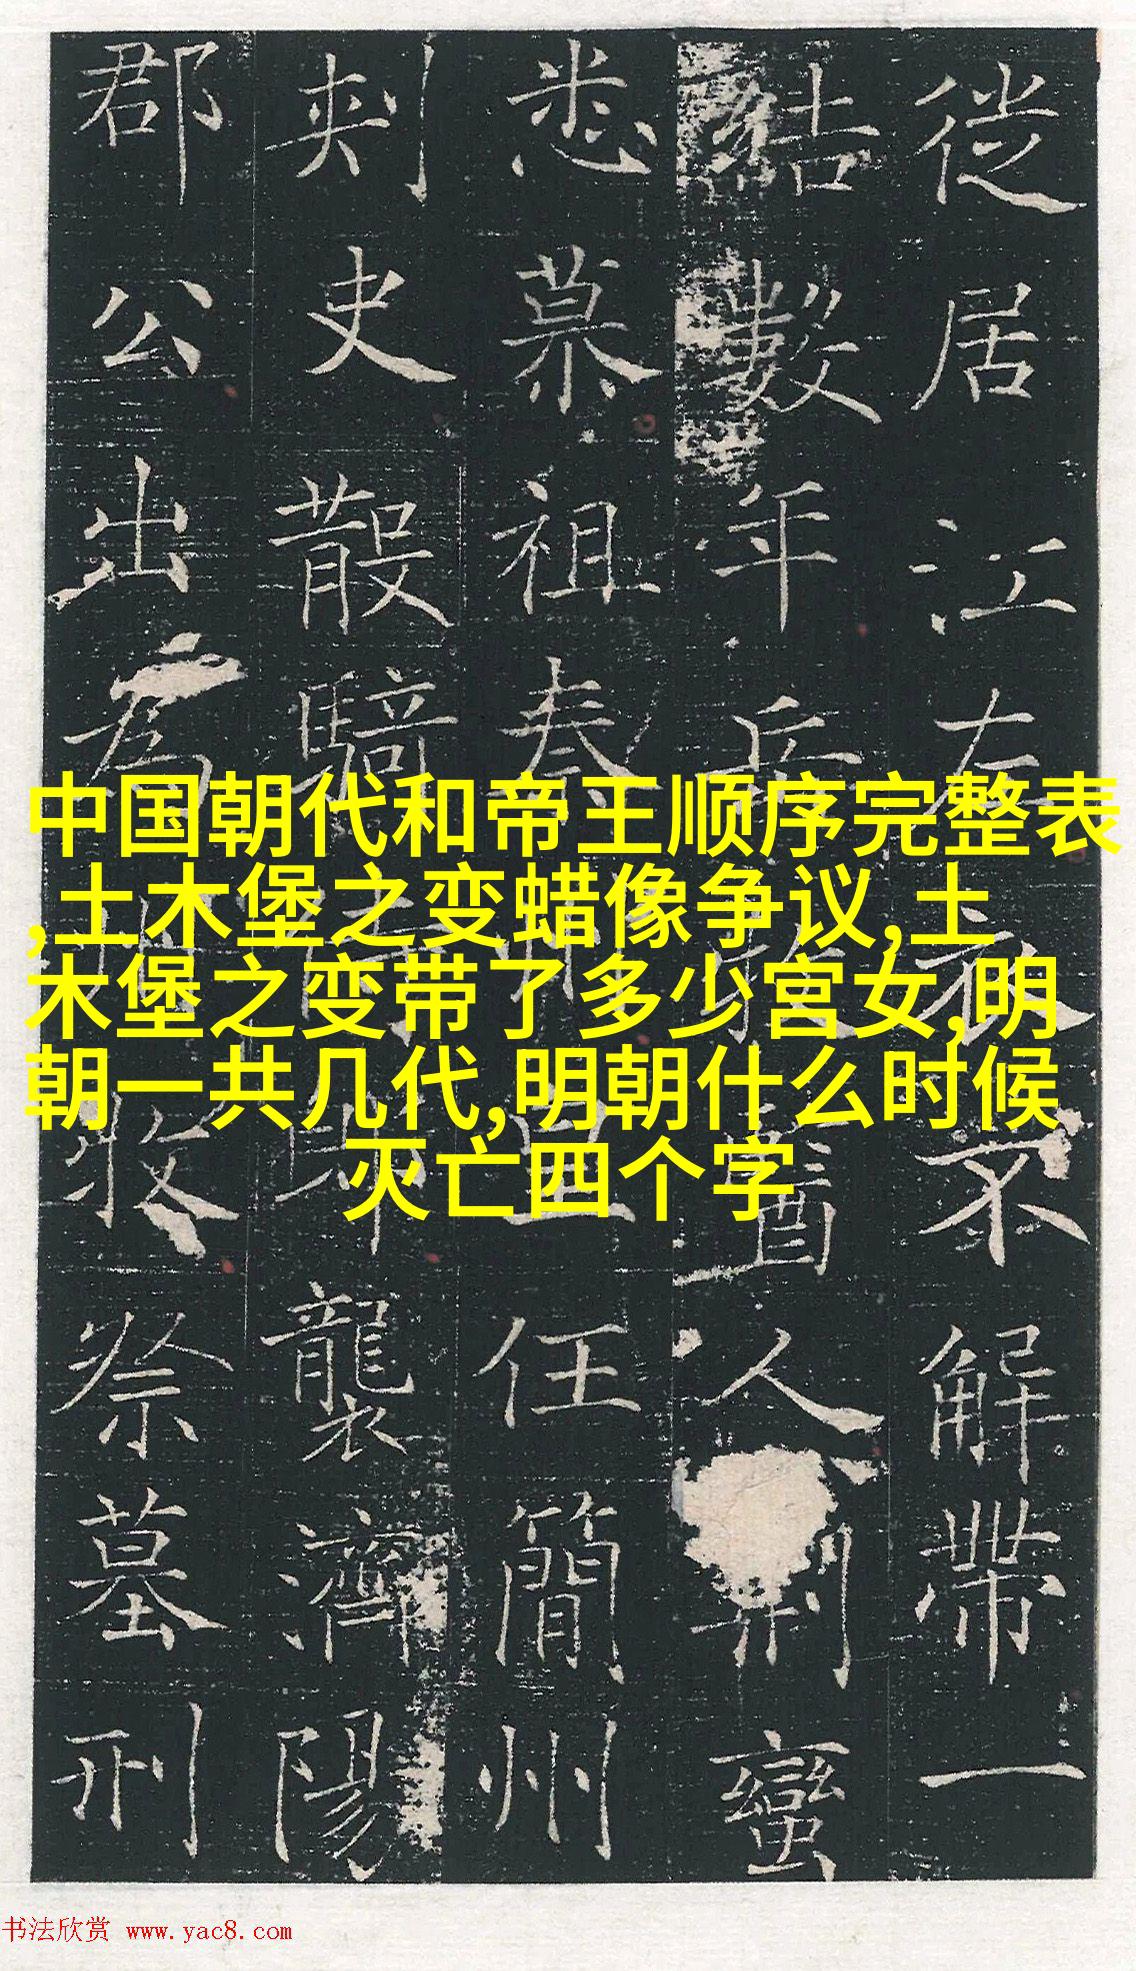 徙居江左衣不解帶一
結數年兵
酋人制蠻
悉慕祖泰
任簡州
刺史散騎
襲濟陽
郡公出為
牧祭墓刑
中国朝代和帝王顺序完整表
,土木堡之变蜡像争议,土
木堡之变带了多少宫女,明
朝一共几代,明朝什么时候
灭亡四个字
书法欣赏 www.yac8.com